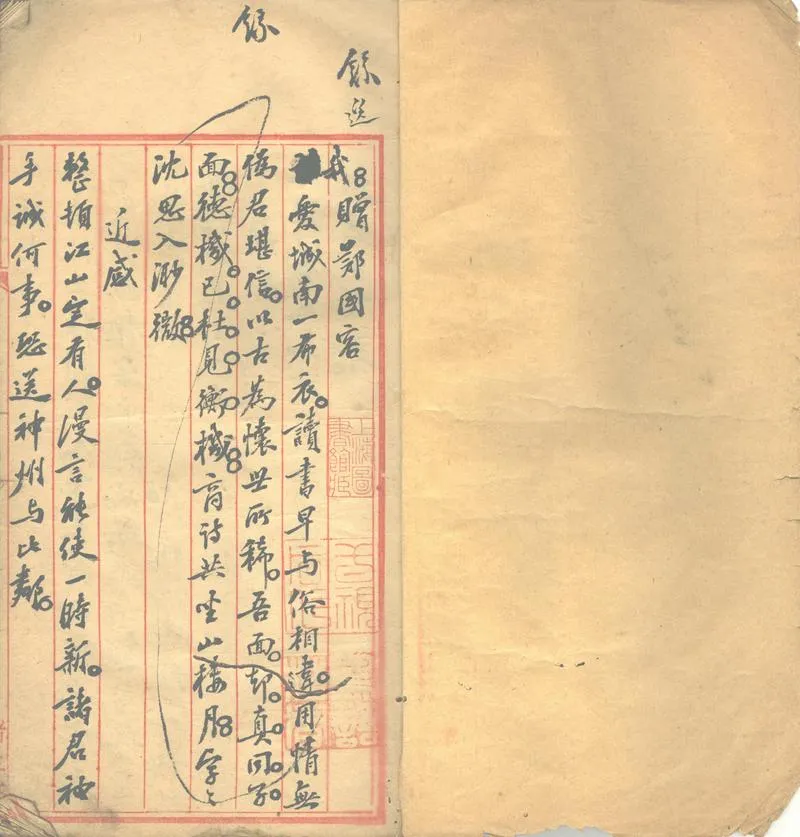 贈鄭國容
愛城南一布衣。讀書早与俗相違。用情無
偽君堪信。以古為懷世所稀。吾面却真同子
面。德機已杜見衡機。詩共坐山樓月字〻
沈思入渺微
近感
整頓江山定有人。漫言能使一時新。諸君袖
手誠何事。恐送神州与比鄰。
上海圖
書館藏